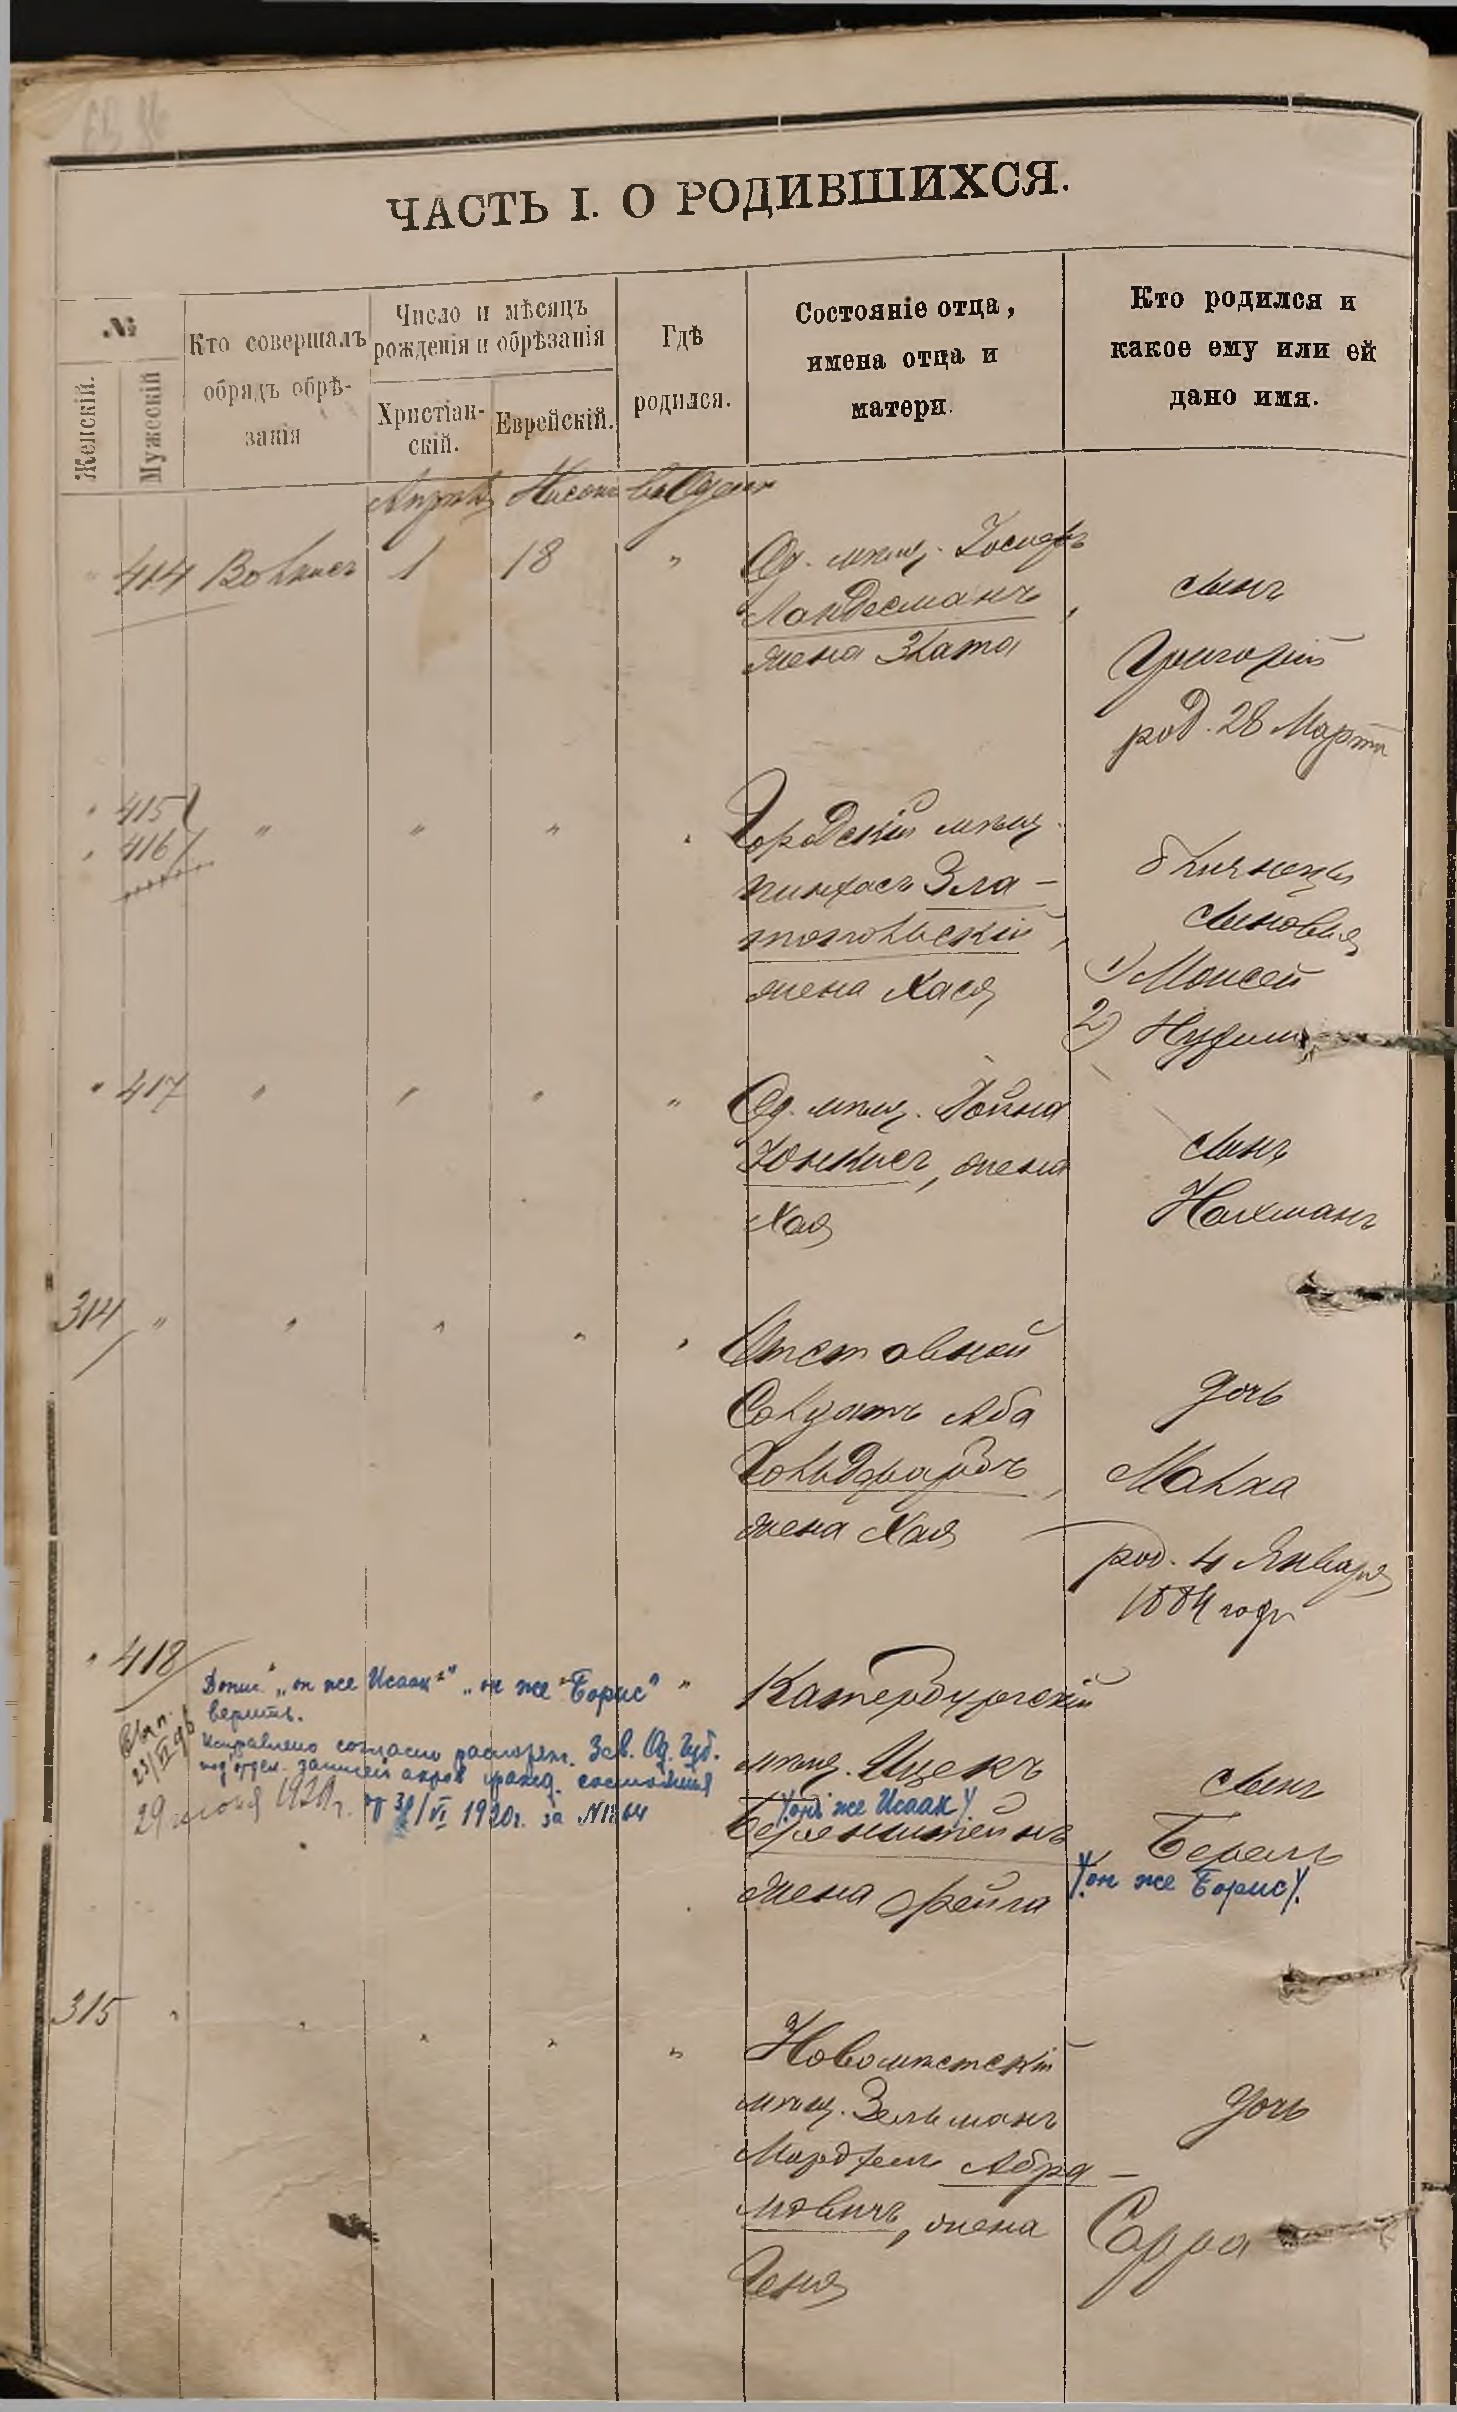 ЧАСТЬ I. О РОДИВШИХСЯ.
№
Женскій.
Мужескій
Кто совершалъ
обрядъ обрѣ-
занія
Число и мѣсяцъ
рожденія и обрѣзанія
Христіан-
скій.
Еврейскій.
Гдѣ
родился.
Состояніе отца,
имена отца и
матери.
Кто родился и
какое ему или ей
дано имя.
Апрѣль Нисонъ въ Одессѣ
" 414 Вольхисъ 1 18 " Од. мѣщ. Іосифъ
Ландесманъ,
жена Злата
сынъ
Григорій
род. 28 Марта
" 415
" 416 " " " " Городскій мѣщ.
Пинхасъ Зла-
топольскій,
жена Хася
близнецы
сыновья
1) Моисей
2) Нухимъ
" 417 " " " " Од. мѣщ. Дойна
Юнкисъ, жена
Хая
сынъ
Нахманъ
314 " " " " " Отставной
Солдатъ Аба
Гольдфарбъ,
жена Хая
дочь
Малка
род. 4 Января
1884 года
" 418
Допис. „он же Исаак" „он же Борис" "
верить.
Исправлено согласно распоряж. Зав. Од. Губ.
подотдел. записей актов гражд. состояния
от 30/VI 1920г. за №1864
29 июня 1920г.
Катербургскій
мѣщ. Ицекъ
(он же Исаак)
Беренштейнъ
жена Фейга
сынъ
Берель
(он же Борис).
315 " " " " " Новомѣстскій
мѣщ. Зельманъ
Мордхель Абра-
мовичъ, жена
Геня
дочь
Сарра